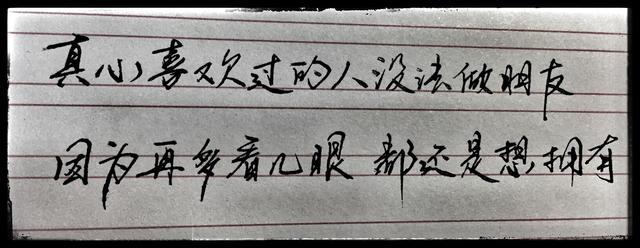 真心喜欢过的人没法做朋友
因为再多看几眼 都还是想拥有